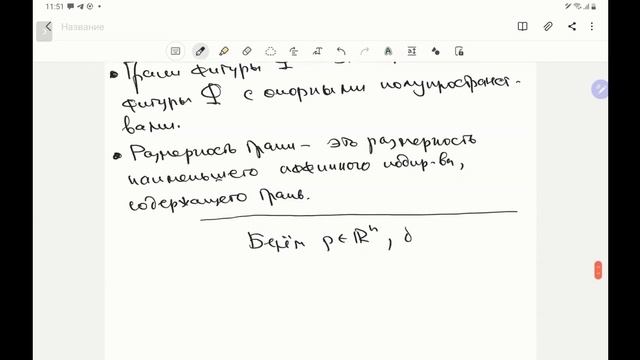 11:51
Название
• Грани фигуры Φ
фигуры Φ с опорными полупространст-
вами.
• Размерность грани – это размерность
наименьшего аффинного подпр-ва,
содержащего грань.
Берём p∈ℝⁿ, δ